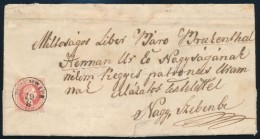 Méltóságos Liber Báro Brukenthal
Herman Ur eö Nagyságának
nékem kegyes patronus Uram
nak alázatos tisztelettel
Nagy Szebenbe